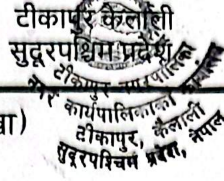 टीकापुर कैलाली
सुदूरपश्चिम प्रदेश
टीकापुर नगरपालिका
नगर कार्यपालिकाको कार्यालय
टीकापुर, कैलाली
सुदूरपश्चिम प्रदेश, नेपाल
वा)